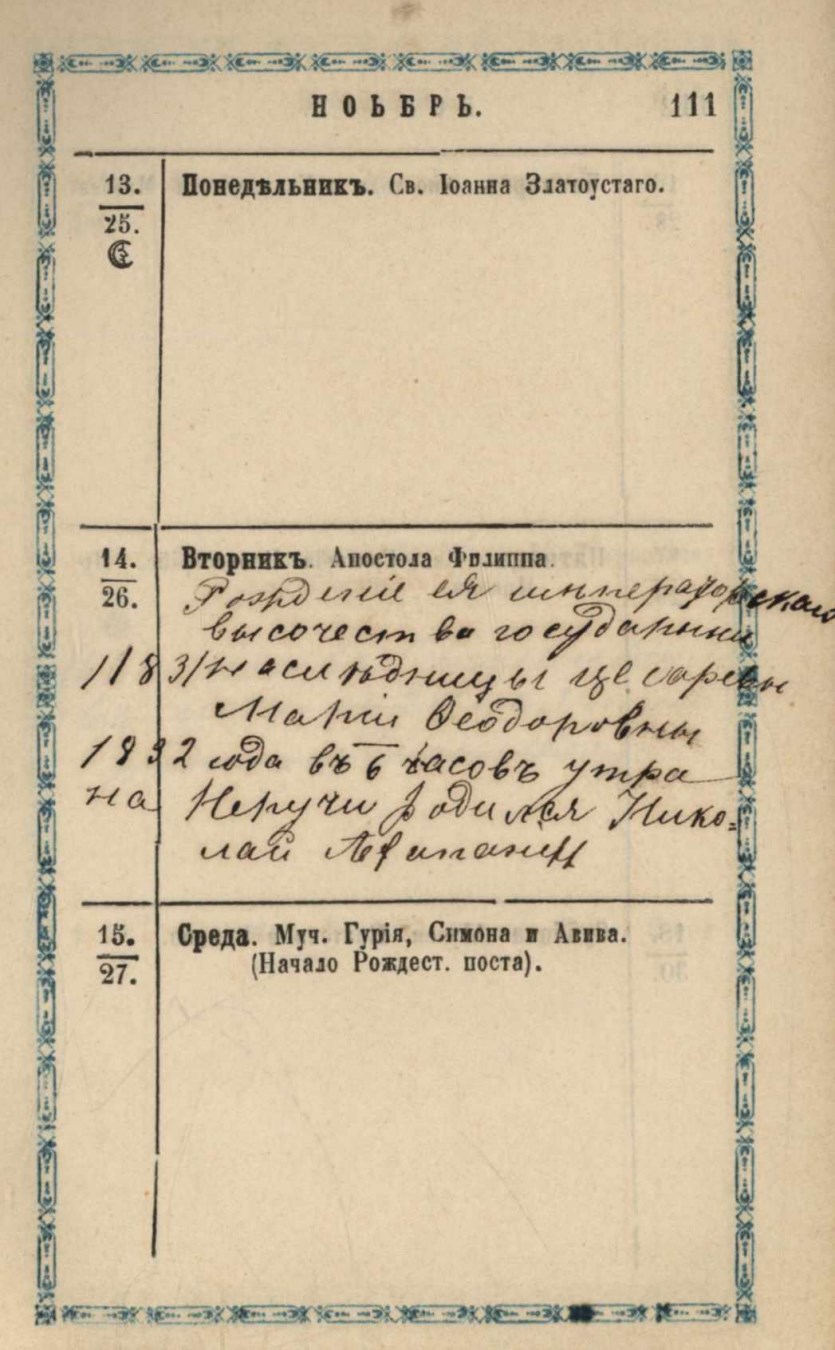 НОЬБРЬ. 111
13. Понедѣльникъ. Св. Іоанна Златоустаго.
25.
14. Вторникъ. Апостола Филиппа.
26. Рожденіе ея императорскаго
высочества государыни
наслѣдницы цесаревны
Маріи Ѳеодоровны
года въ 6 часовъ утра
на Неручи родился Нико-
лай
15. Среда. Муч. Гурія, Симона и Авива.
27. (Начало Рождест. поста).